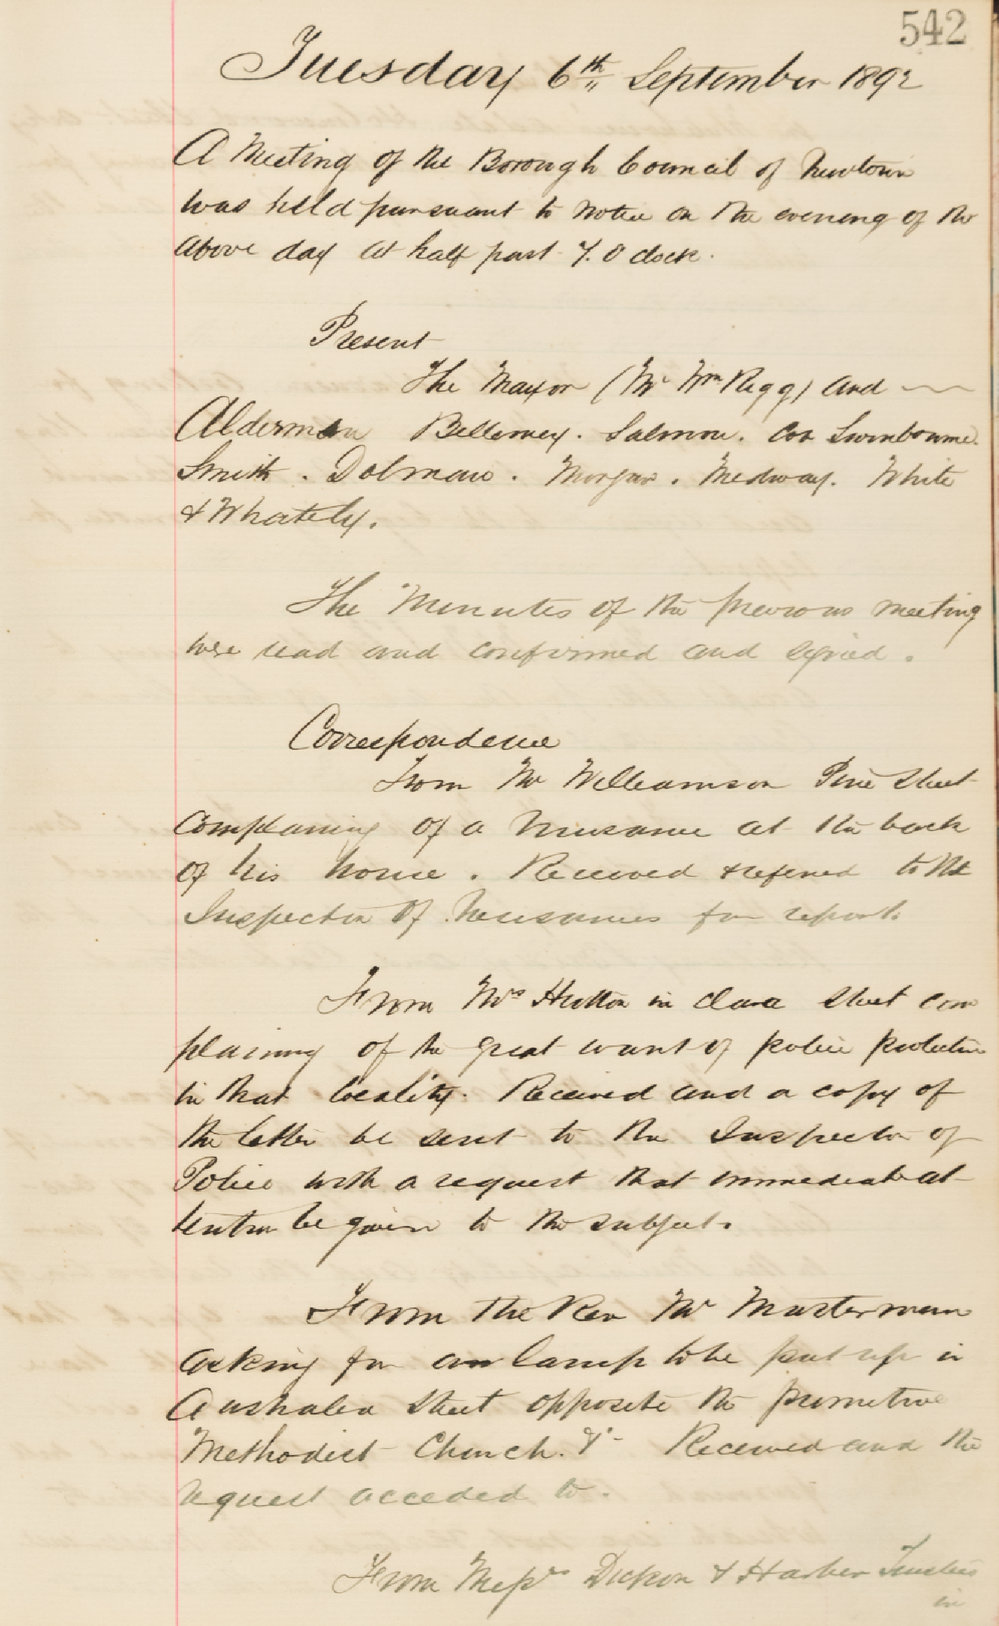 542
Tuesday 6th September 1892
A Meeting of the Borough Council of Newtown
was held pursuant to notice on the evening of the
above day at half past 7. O clock.
Present
The Mayor (Mr Wm Rigg) and
Aldermen Bellemey. Salmon. Cox Swinbourne.
Smith. Dolman. Morgan. Medway. White
& Whately.
The Minutes of the previous meeting
were read and confirmed and signed.
Correspondence
From Mr Williamson Pine Street
Complaining of a Nuisance at the back
of his house. Received & refered to the
Inspector of Nuisances for report.
From Mrs Hutton in Clara Street com
plaining of the great want of police protection
in that locality. Received and a copy of
the letter be sent to the Inspector of
Police with a request that immediate at
tention be given to the subject.
From the Rev Mr Masterman
asking for a lamp to be put up in
Australia Street opposite the primitive
Methodist Church. &c Received and the
request acceded to.
From Messrs Dickson & Harber Trustees
in